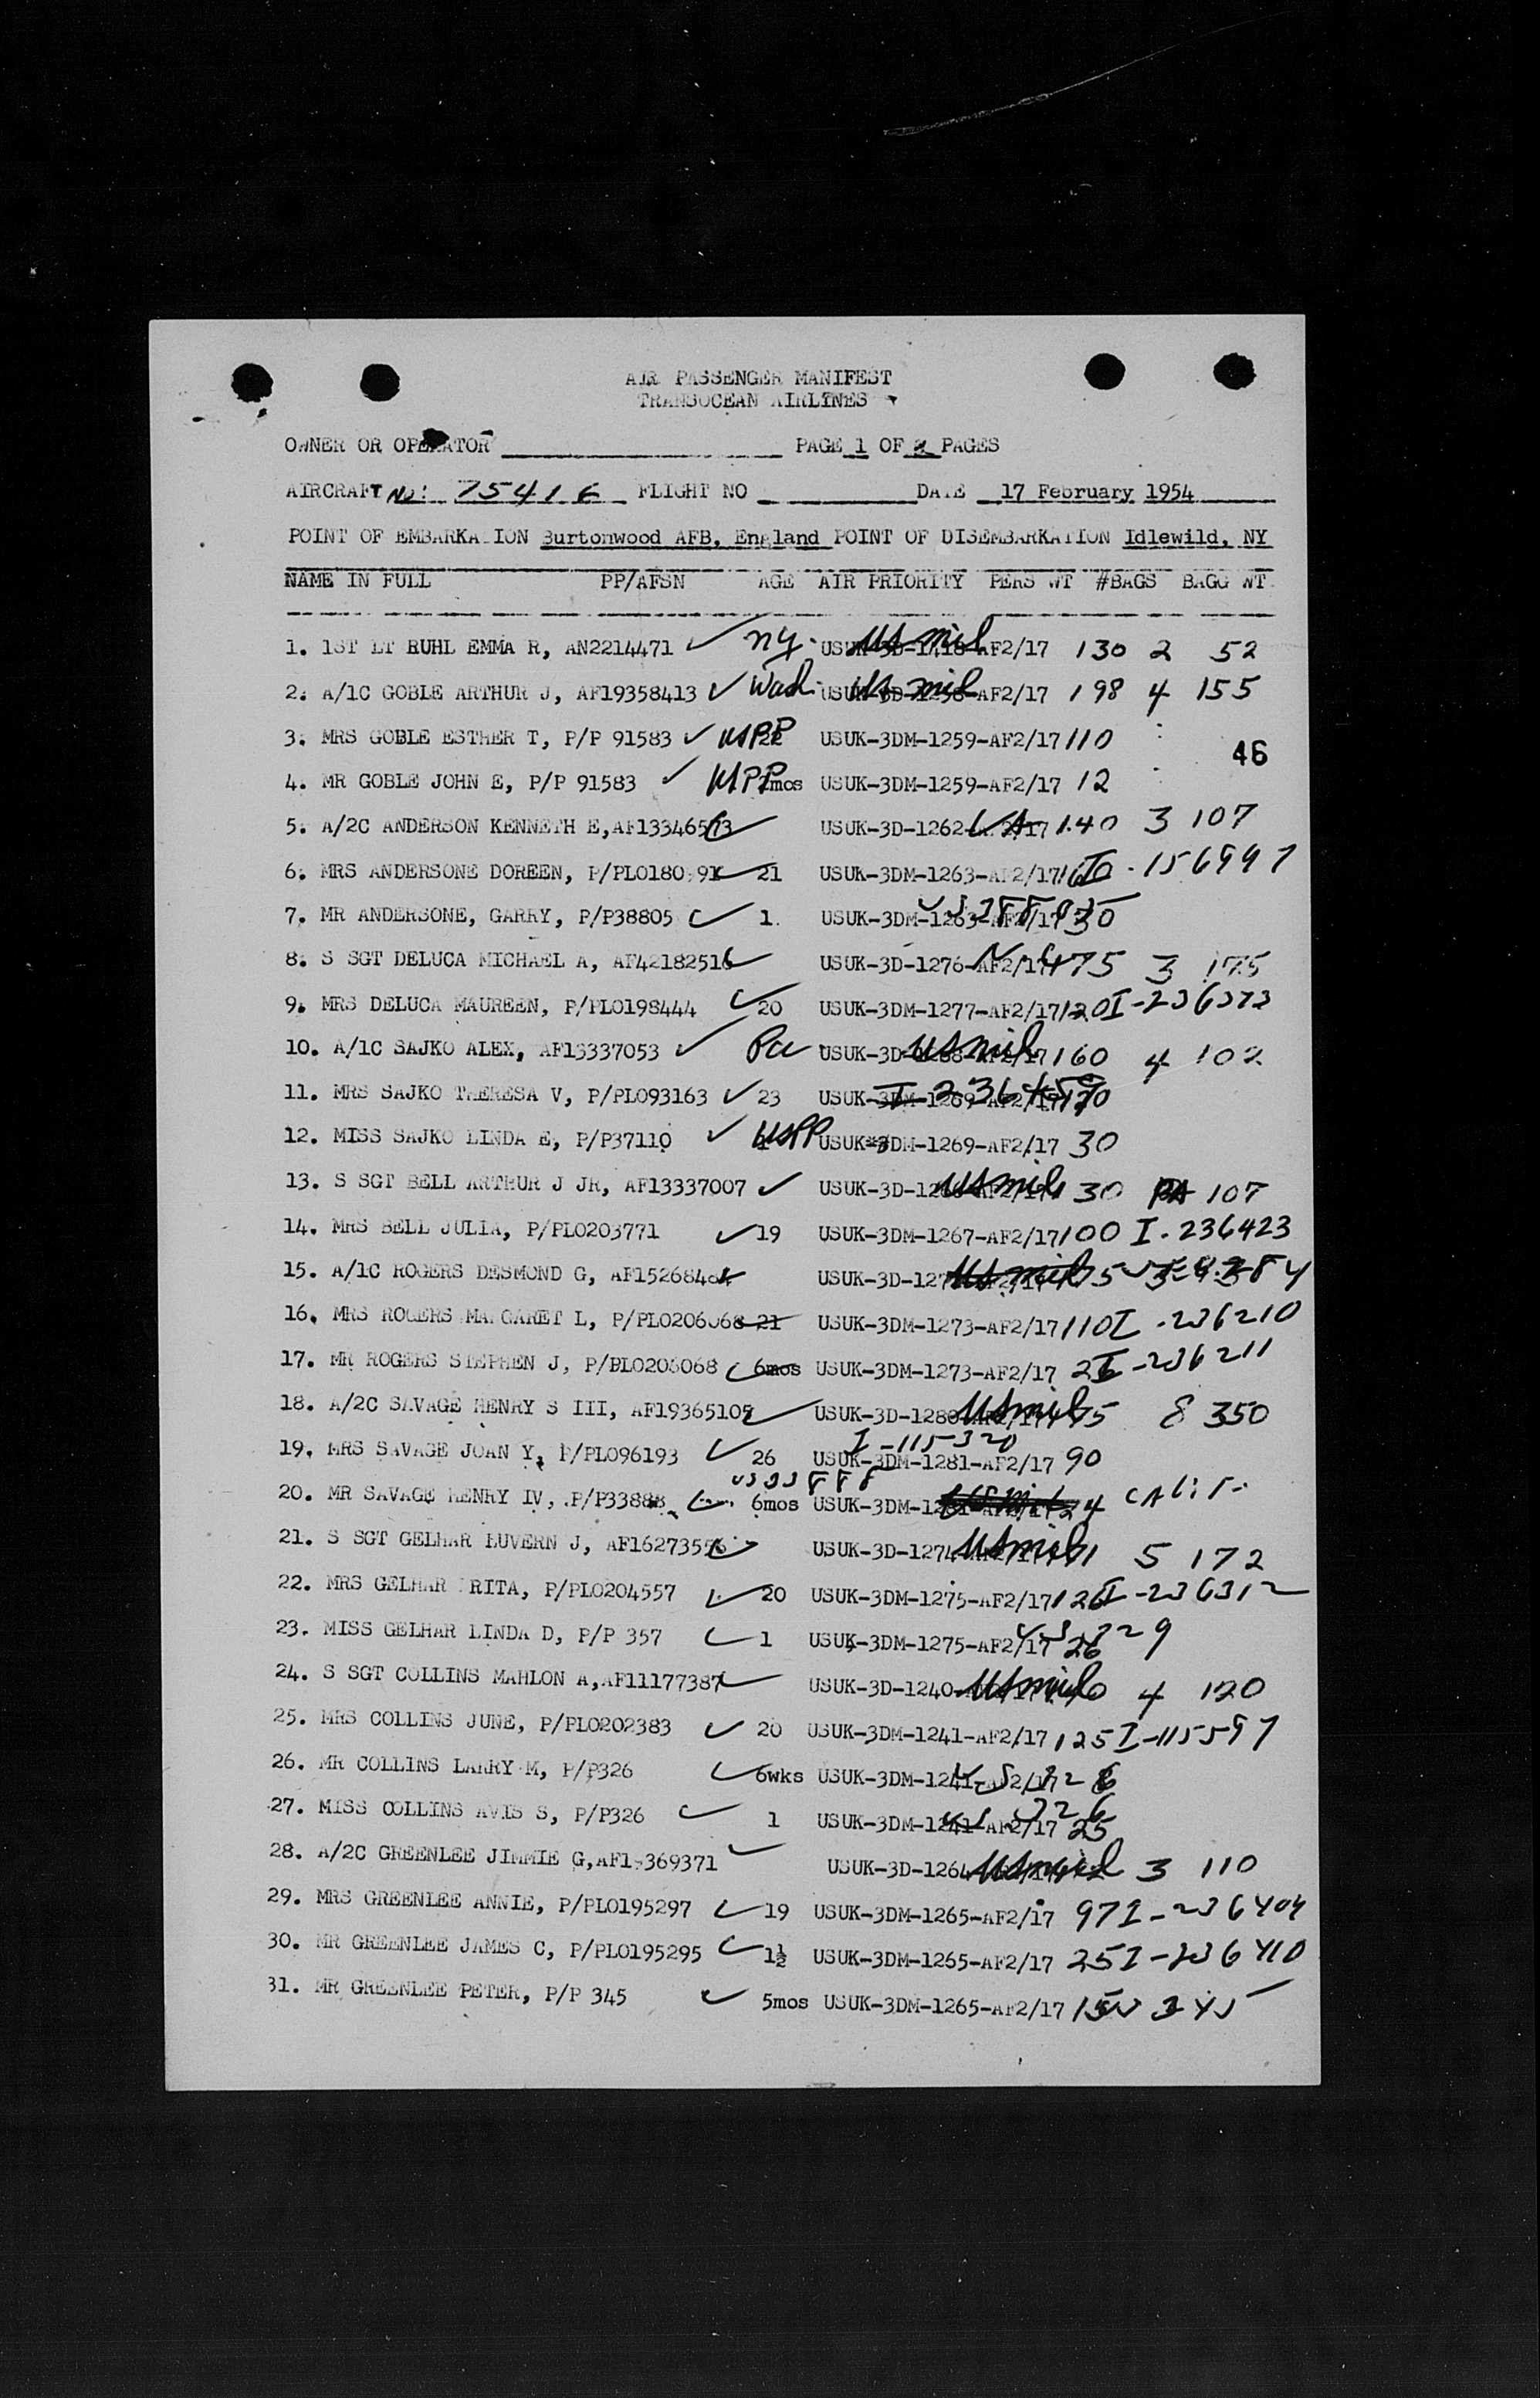 AIR PASSENGER MANIFEST
TRANSOCEAN AIRLINES
OWNER OR OPERATOR PAGE 1 OF 2 PAGES
AIRCRAFT No: 75416 FLIGHT NO DATE 17 February 1954
POINT OF EMBARKATION Burtonwood AFB, England POINT OF DISEMBARKATION Idlewild, NY
NAME IN FULL PP/AFSN AGE AIR PRIORITY PERS WT #BAGS BAGG WT
1. 1ST LT RUHL EMMA R, AN2214471 ✓ NY. US mil AF2/17 130 2 52
2. A/1C GOBLE ARTHUR J, AF19358413 ✓ Wash. US mil AF2/17 198 4 155
3. MRS GOBLE ESTHER T, P/P 91583 ✓ USPP USUK-3DM-1259-AF2/17 110
46
4. MR GOBLE JOHN E, P/P 91583 ✓ USPP mos USUK-3DM-1259-AF2/17 12
5. A/2C ANDERSON KENNETH E, ✓ USUK-3D-1262- 140 3 107
6. MRS ANDERSONE DOREEN, 21 USUK-3DM-1263-AF2/17 156997
7. MR ANDERSONE, GARRY, P/P38805 ✓ 1 USUK-3DM-1263-AF2/17 30
8. S SGT DELUCA MICHAEL A, ✓ USUK-3D-1276-AF2/17 175 3 175
9. MRS DELUCA MAUREEN, P/PLO198444 ✓ 20 USUK-3DM-1277-AF2/17 120 I-236373
10. A/1C SAJKO ALEX, AF13337053 ✓ Pa US mil 160 4 102
11. MRS SAJKO THERESA V, P/PLO93163 ✓ 23 USUK-3DM-1269-AF2/17
12. MISS SAJKO LINDA E, P/P37110 ✓ USPP USUK-3DM-1269-AF2/17 30
13. S SGT BELL ARTHUR J JR, AF13337007 ✓ US mil 130 PA 107
14. MRS BELL JULIA, P/PLO203771 ✓ 19 USUK-3DM-1267-AF2/17 100 I-236423
15. A/1C ROGERS DESMOND G, US mil
16. MRS ROGERS MARGARET L, P/PLO206068 21 USUK-3DM-1273-AF2/17 110 I-236210
17. MR ROGERS STEPHEN J, P/PLO206068 ✓ 6mos USUK-3DM-1273-AF2/17 I-236211
18. A/2C SAVAGE HENRY S III, AF19365105 ✓ USUK-3D-1280 US mil 175 8 350
I-115320
19. MRS SAVAGE JOAN Y, P/PLO96193 ✓ 26 USUK-3DM-1281-AF2/17 90
US 33888
20. MR SAVAGE HENRY IV, P/P33888 6mos USUK-3DM-1281-AF2/17 24 CALIF.
21. S SGT GELHAR LUVERN J, ✓ USUK-3D-1274 US mil 5 172
22. MRS GELHAR RITA, P/PLO204557 ✓ 20 USUK-3DM-1275-AF2/17 126 I-236312
23. MISS GELHAR LINDA D, P/P 357 ✓ 1 USUK-3DM-1275-AF2/17 26
24. S SGT COLLINS MAHLON A, AF11177387 ✓ USUK-3D-1240 US mil 4 120
25. MRS COLLINS JUNE, P/PLO202383 ✓ 20 USUK-3DM-1241-AF2/17 125 I-115597
26. MR COLLINS LARRY M, P/P326 ✓ 6wks USUK-3DM-1241-AF2/17
27. MISS COLLINS AVIS S, P/P326 ✓ 1 USUK-3DM-1241-AF2/17 25
28. A/2C GREENLEE JIMMIE G, ✓ USUK-3D-1264 US mil 3 110
29. MRS GREENLEE ANNIE, P/PLO195297 ✓ 19 USUK-3DM-1265-AF2/17 97 I-236404
30. MR GREENLEE JAMES C, P/PLO195295 ✓ 1½ USUK-3DM-1265-AF2/17 25 I-236410
31. MR GREENLEE PETER, P/P 345 ✓ 5mos USUK-3DM-1265-AF2/17 345